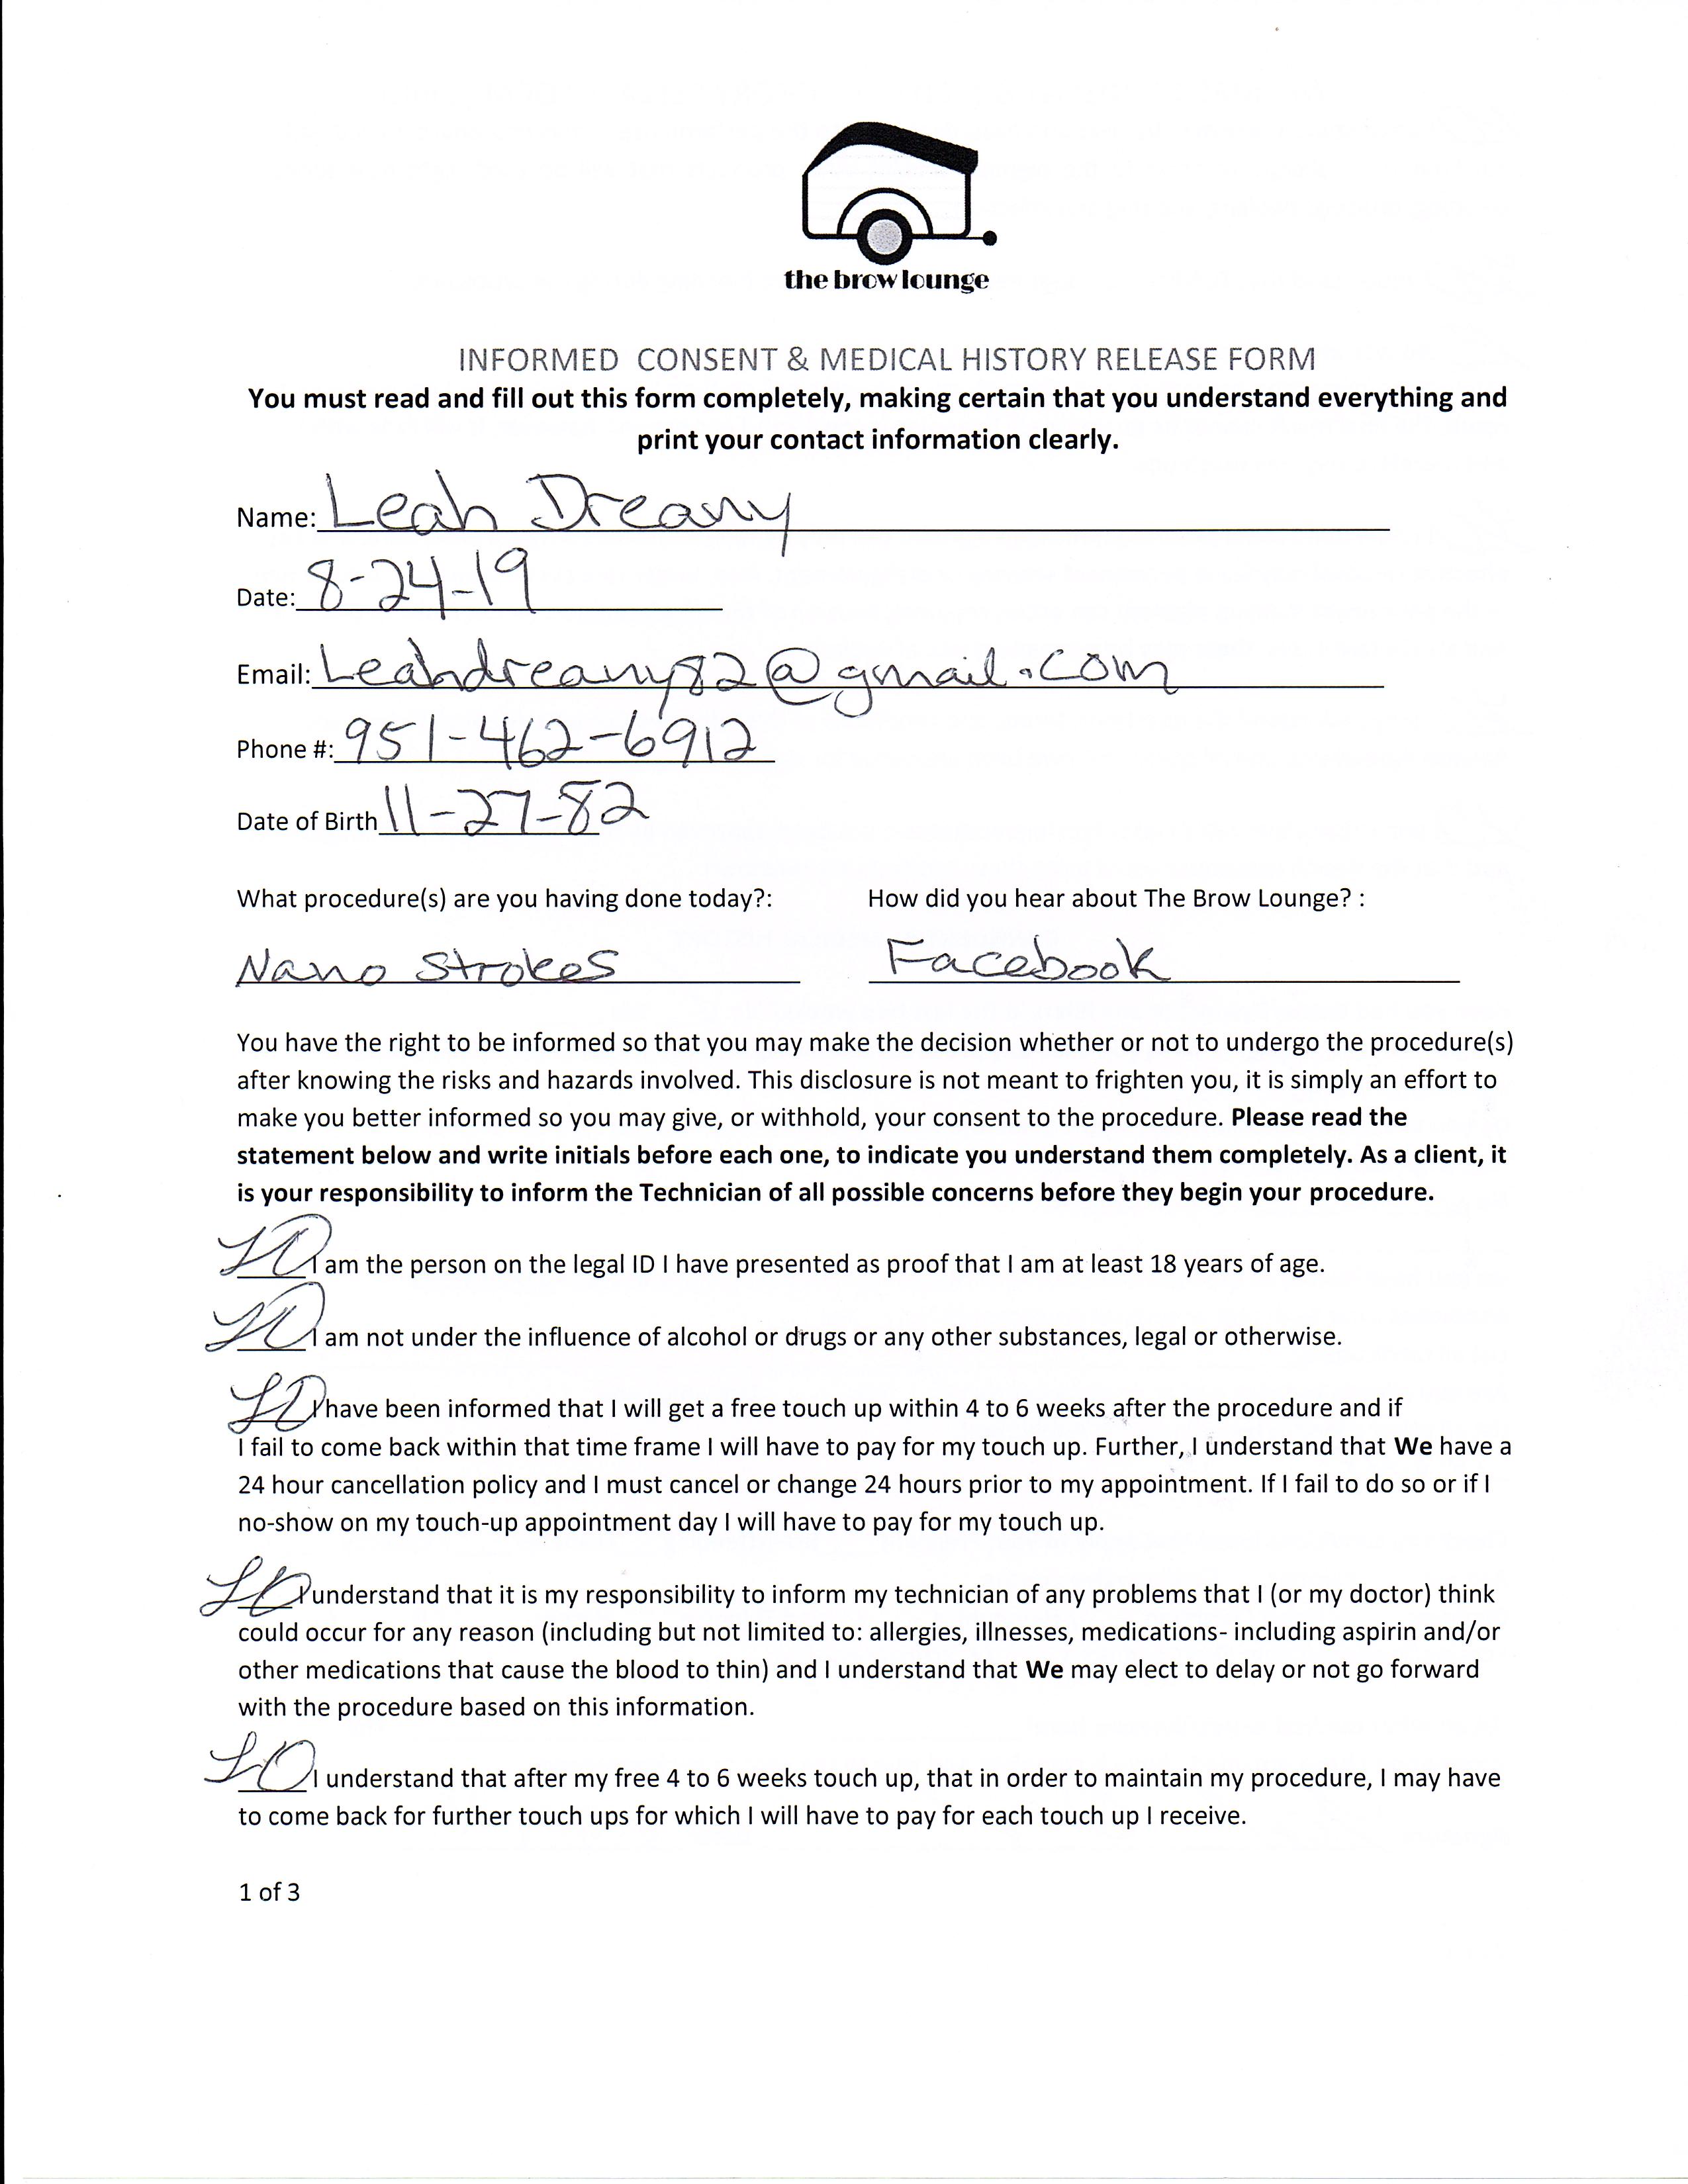 the brow lounge
INFORMED CONSENT & MEDICAL HISTORY RELEASE FORM
You must read and fill out this form completely, making certain that you understand everything and
print your contact information clearly.
Name: Leah Dreany
Date: 8-24-19
Email: Leahdreany82@gmail.com
Phone #: 951-462-6912
Date of Birth 11-27-82
What procedure(s) are you having done today?: How did you hear about The Brow Lounge? :
Nano Strokes Facebook
You have the right to be informed so that you may make the decision whether or not to undergo the procedure(s)
after knowing the risks and hazards involved. This disclosure is not meant to frighten you, it is simply an effort to
make you better informed so you may give, or withhold, your consent to the procedure. Please read the
statement below and write initials before each one, to indicate you understand them completely. As a client, it
is your responsibility to inform the Technician of all possible concerns before they begin your procedure.
LD I am the person on the legal ID I have presented as proof that I am at least 18 years of age.
LD I am not under the influence of alcohol or drugs or any other substances, legal or otherwise.
LD I have been informed that I will get a free touch up within 4 to 6 weeks after the procedure and if
I fail to come back within that time frame I will have to pay for my touch up. Further, I understand that We have a
24 hour cancellation policy and I must cancel or change 24 hours prior to my appointment. If I fail to do so or if I
no-show on my touch-up appointment day I will have to pay for my touch up.
LD I understand that it is my responsibility to inform my technician of any problems that I (or my doctor) think
could occur for any reason (including but not limited to: allergies, illnesses, medications- including aspirin and/or
other medications that cause the blood to thin) and I understand that We may elect to delay or not go forward
with the procedure based on this information.
LD I understand that after my free 4 to 6 weeks touch up, that in order to maintain my procedure, I may have
to come back for further touch ups for which I will have to pay for each touch up I receive.
1 of 3